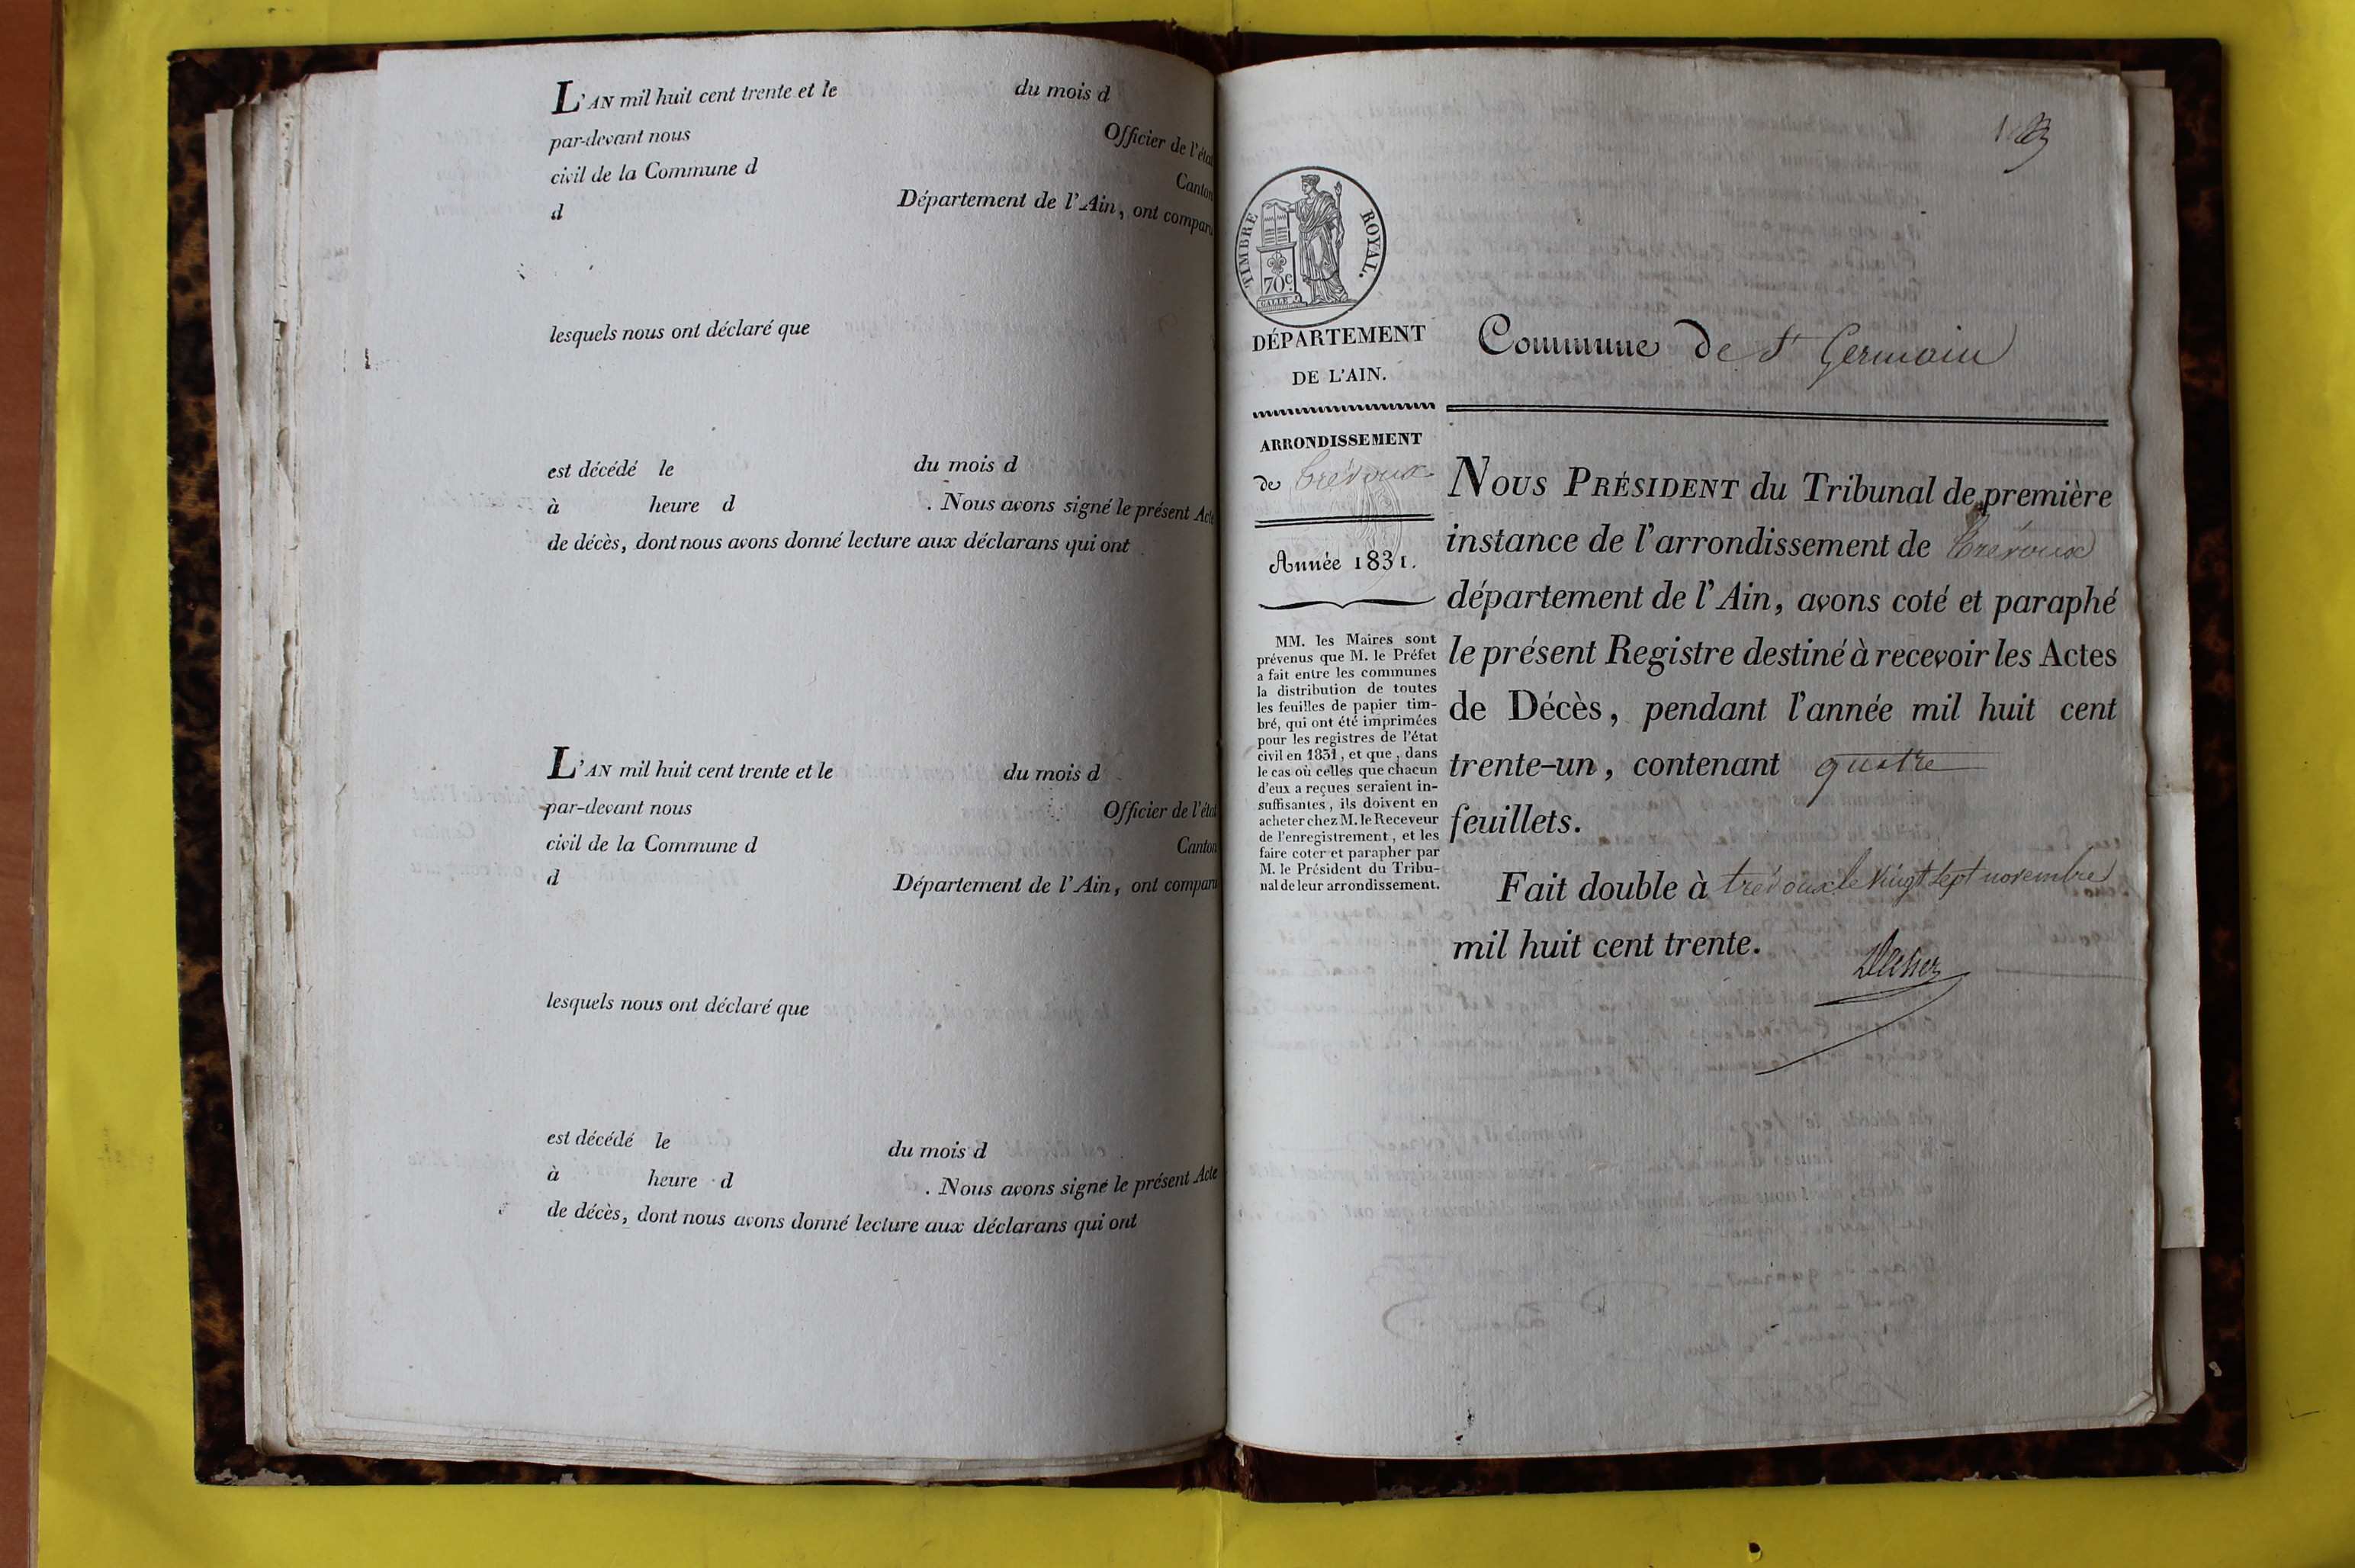 L'AN mil huit cent trente et le du mois d
par-devant nous Officier de l'état
civil de la Commune d Canton
d Département de l'Ain, ont comparu
lesquels nous ont déclaré que
est décédé le du mois d
à heure d . Nous avons signé le présent Acte
de décès, dont nous avons donné lecture aux déclarans qui ont
L'AN mil huit cent trente et le du mois d
par-devant nous Officier de l'état
civil de la Commune d Canton
d Département de l'Ain, ont comparu
lesquels nous ont déclaré que
est décédé le du mois d
à heure d . Nous avons signé le présent Acte
de décès, dont nous avons donné lecture aux déclarans qui ont
TIMBRE ROYAL.
70c.
DÉPARTEMENT
DE L'AIN.
ARRONDISSEMENT
de Trévoux
Année 1831.
MM. les Maires sont
prévenus que M. le Préfet
a fait entre les communes
la distribution de toutes
les feuilles de papier tim-
bré, qui ont été imprimées
pour les registres de l'état
civil en 1831, et que, dans
le cas où celles que chacun
d'eux a reçues seraient in-
suffisantes, ils doivent en
acheter chez M. le Receveur
de l'enregistrement, et les
faire coter et parapher par
M. le Président du Tribu-
nal de leur arrondissement.
Commune de St Germain
NOUS PRÉSIDENT du Tribunal de première
instance de l'arrondissement de Trévoux
département de l'Ain, avons coté et paraphé
le présent Registre destiné à recevoir les Actes
de Décès, pendant l'année mil huit cent
trente-un, contenant quatre
feuillets.
Fait double à trévoux le vingt sept novembre
mil huit cent trente.